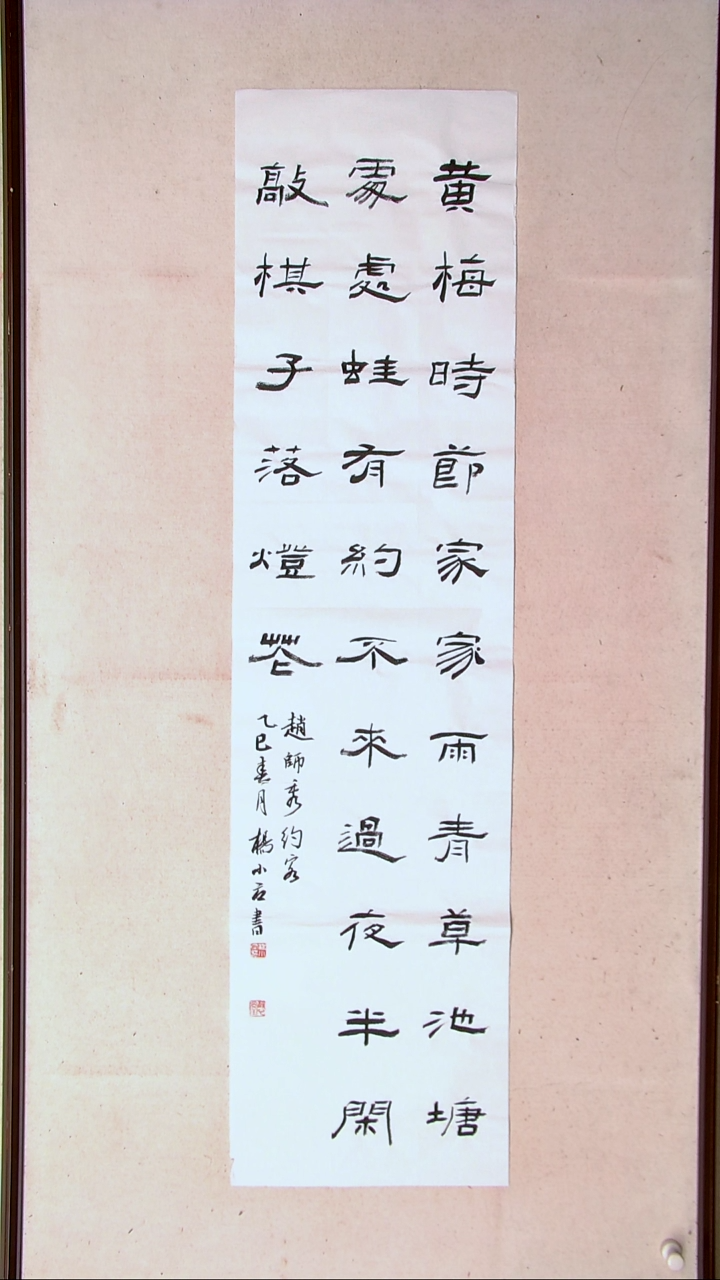 黃梅時節家家雨青草池塘
處處蛙有約不來過夜半閑
敲棋子落燈花
趙師秀約客
乙巳春月楊小石書